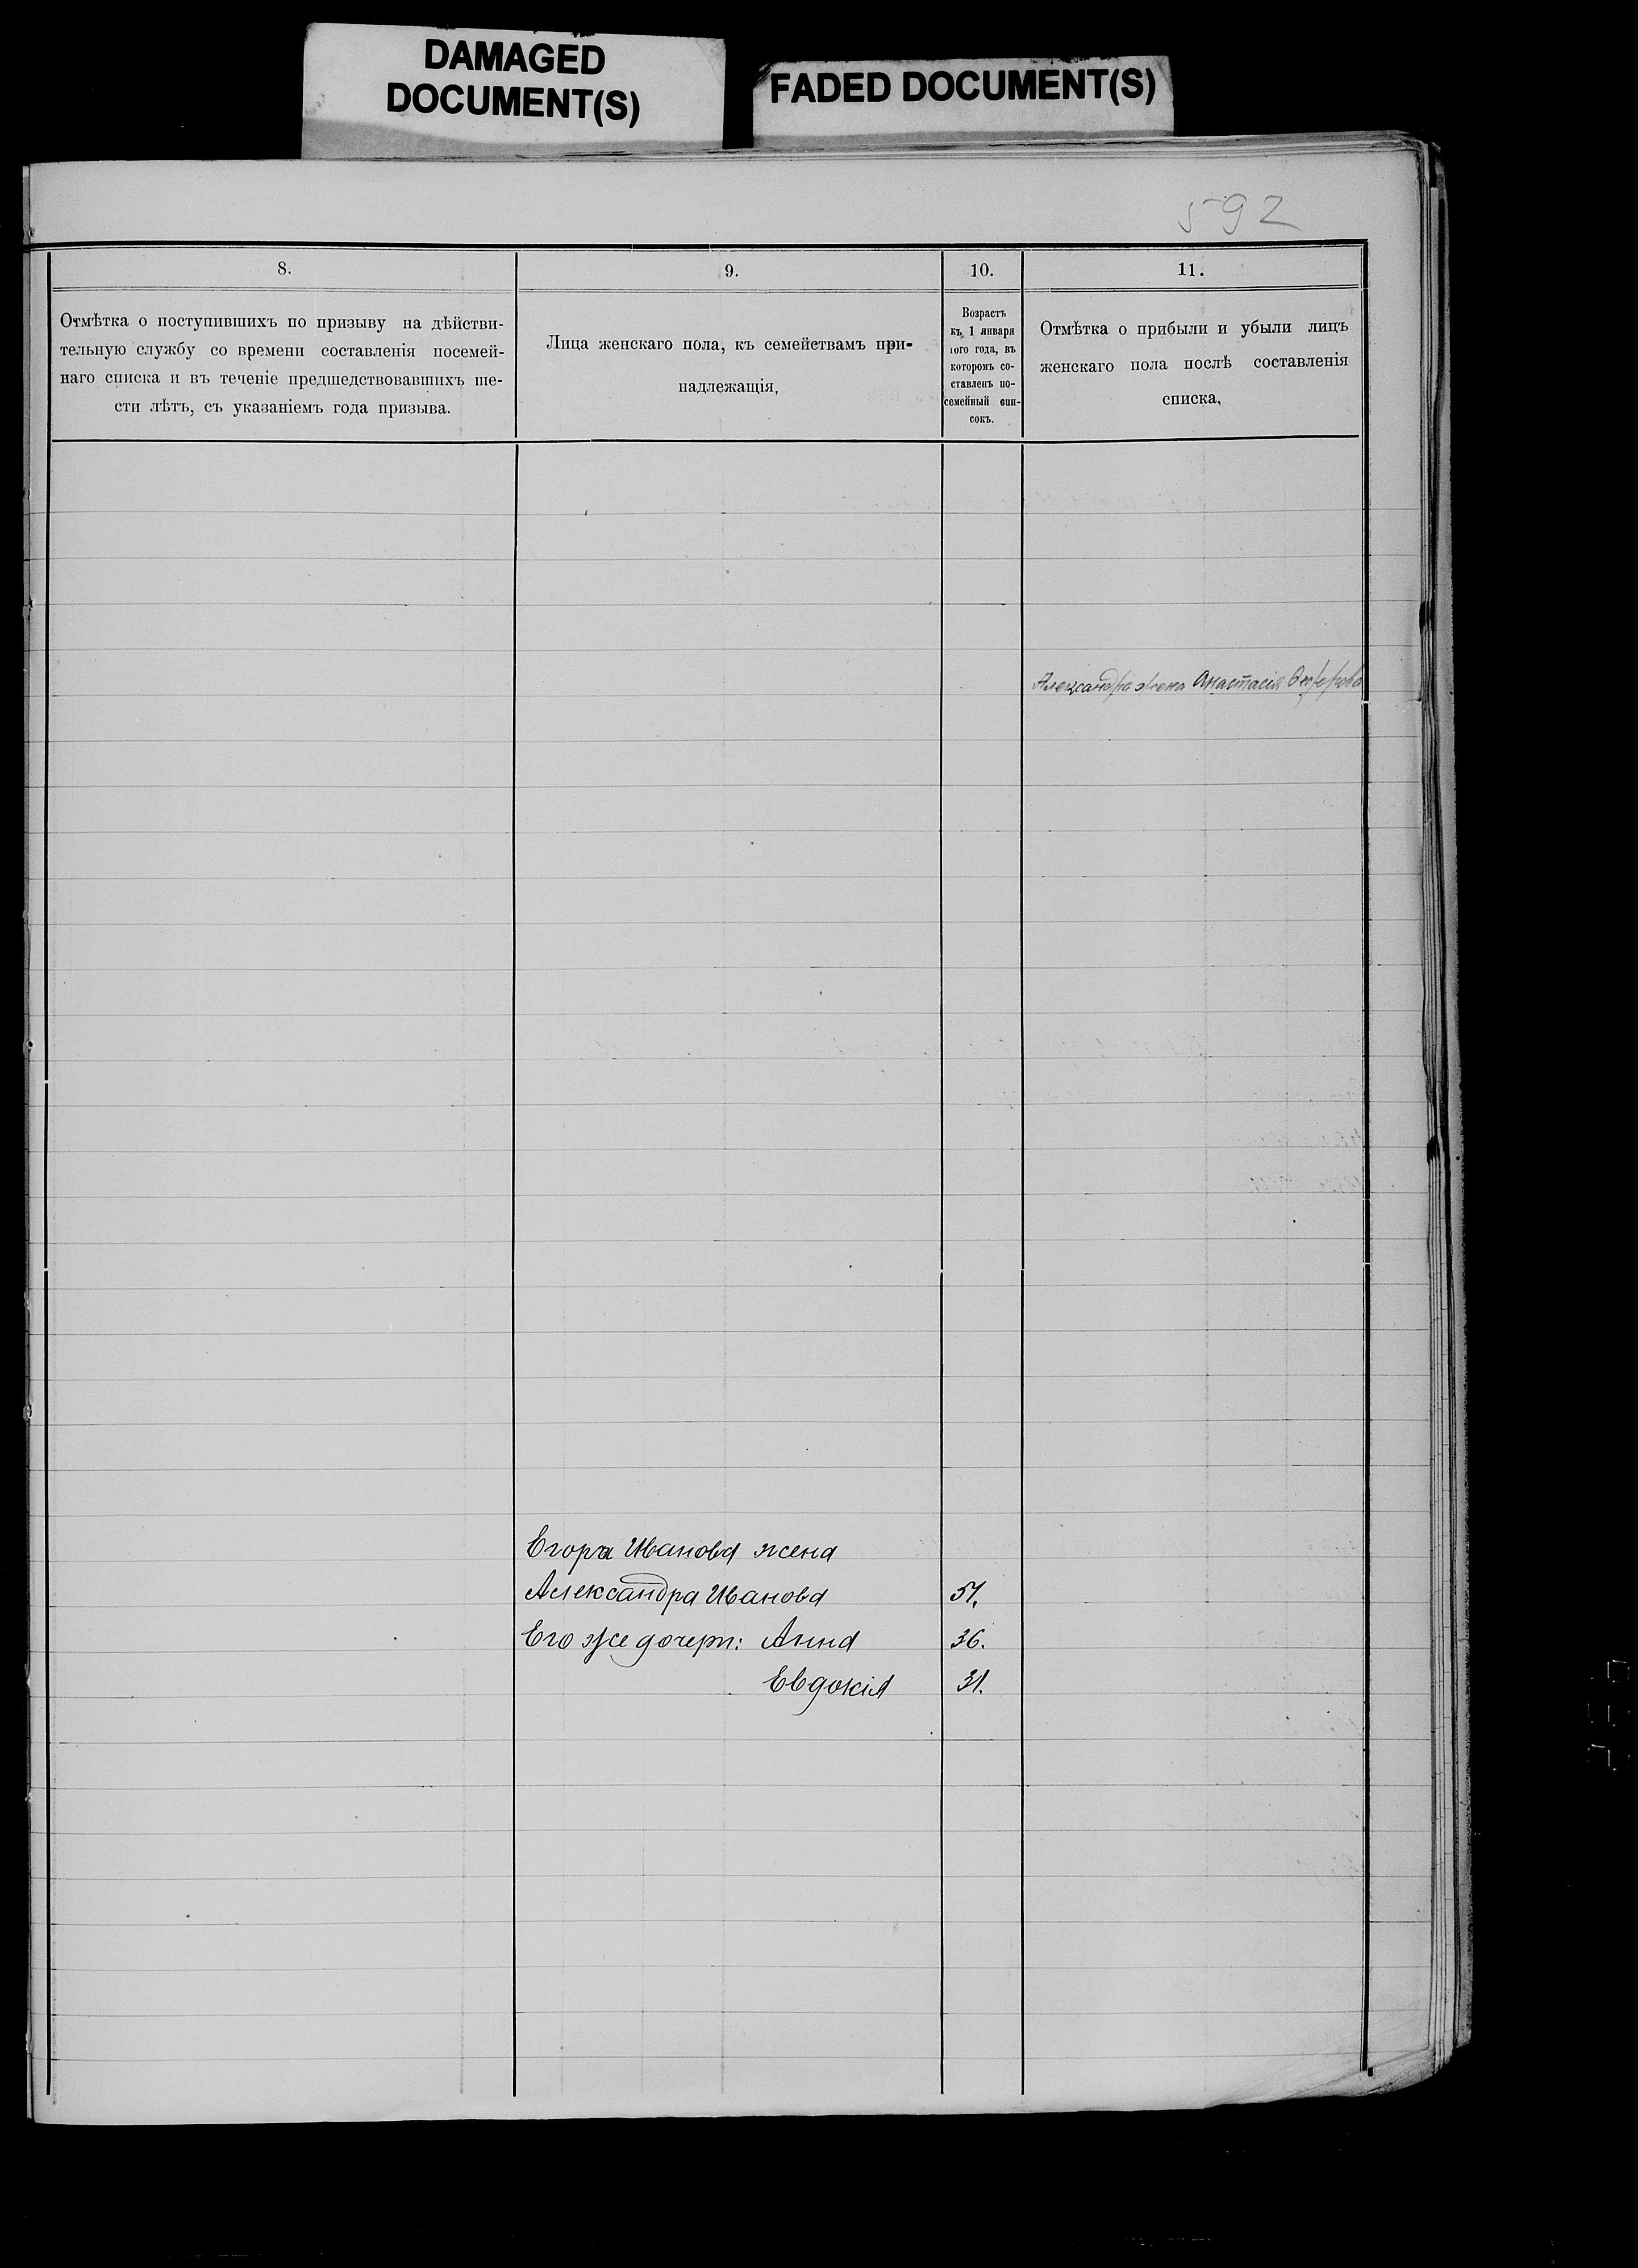 DAMAGED
DOCUMENT(S)
FADED DOCUMENT(S)
592
8.
Отмѣтка о поступившихъ по призыву на дѣйстви-
тельную службу со времени составленія посемей-
наго списка и въ теченіе предшедствовавшихъ ше-
сти лѣтъ, съ указаніемъ года призыва.
9.
Лица женскаго пола, къ семействамъ при-
надлежащія,
10.
Возрастъ
къ 1 января
того года, въ
которомъ со-
ставленъ по-
семейный спи-
сокъ.
11.
Отмѣтка о прибыли и убыли лицъ
женскаго пола послѣ составленія
списка,
Александра жена Анастасія
Егора Иванова жена
Александра Иванова 51.
Его же дочери: Анна 36.
Евдокія 31.